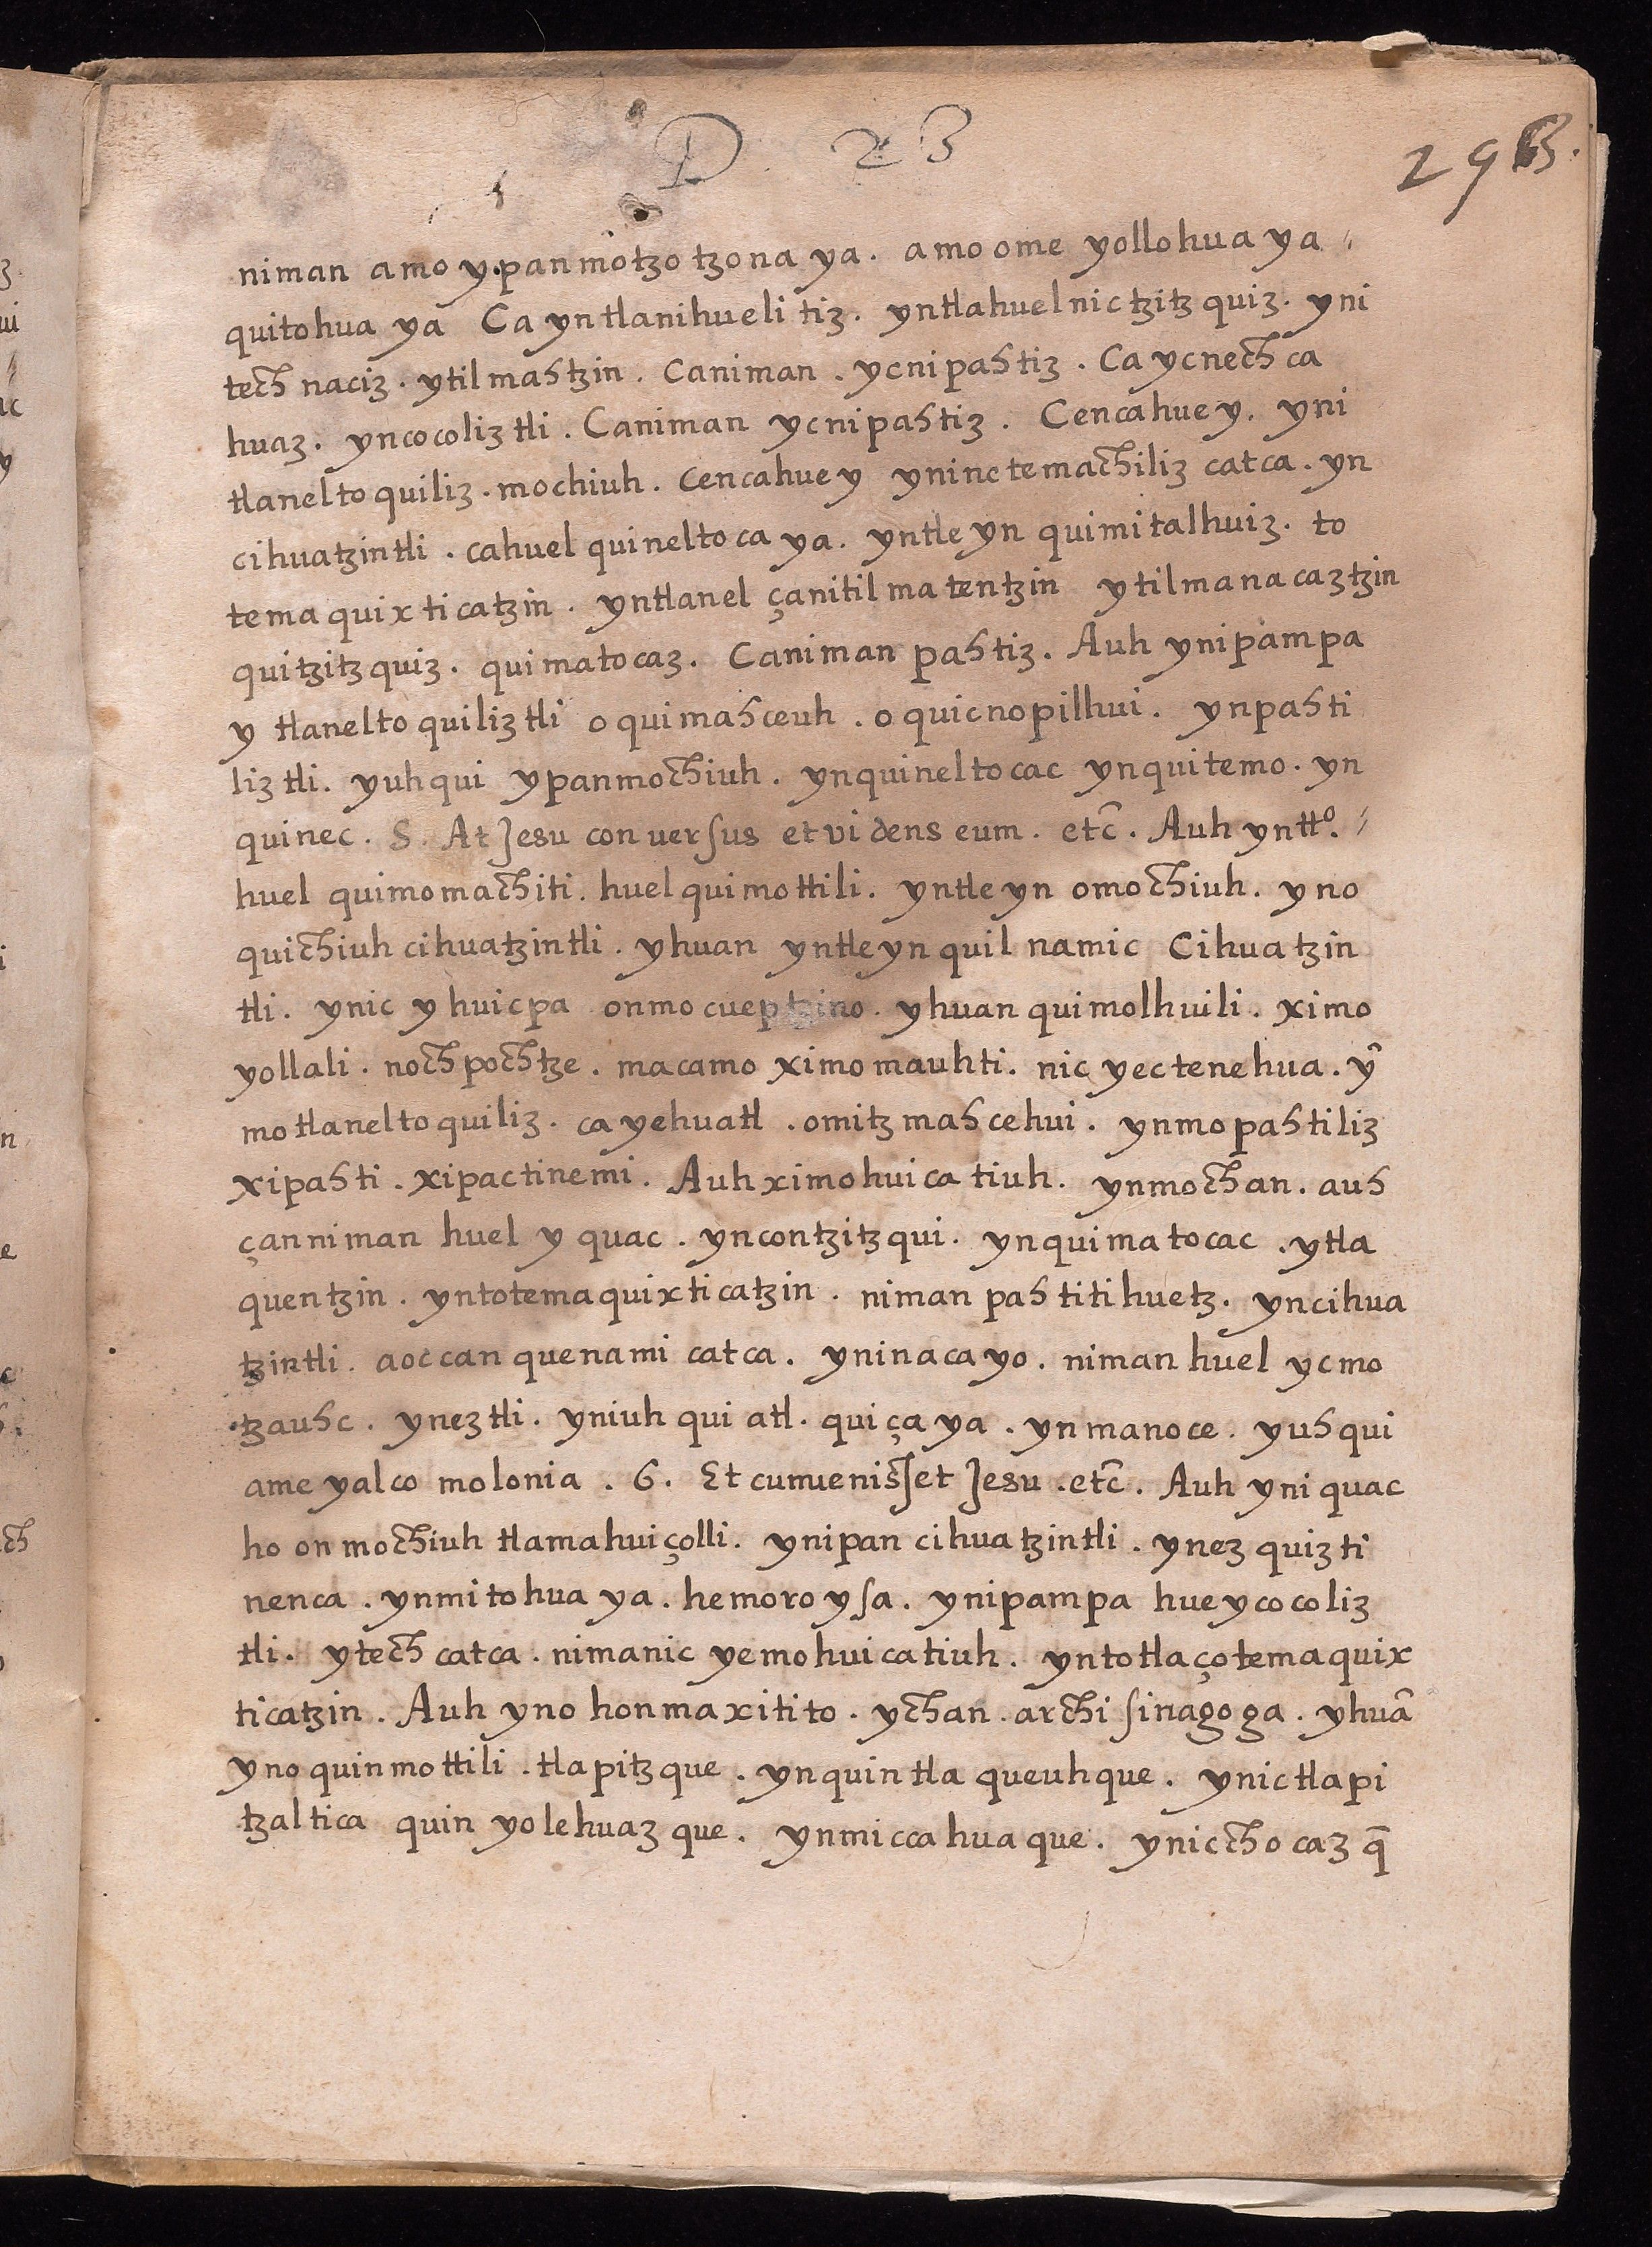 D 23
293.
niman amo ypanmotzotzona ya. amo ome yollohua ya
quitohua ya Ca yntlanihuelitiz. yntlahuel nictzitzquiz. yni
tech naciz. ytilmahtzin. Caniman. ycnipahtiz. Ca ycnechca
huaz. yncocoliztli. Caniman ycnipahtiz. Cencahuey. yni
tlaneltoquiliz. mochiuh. Cencahuey yninctemachiliz catca. yn
cihuatzintli. cahuel quineltoca ya. yntleyn quimitalhuiz. to
temaquixticatzin. yntlanel çanitilmatentzin ytilmanacaztzin
quitzitzquiz. quimatocaz. Caniman pahtiz. Auh ynipampa
y tlaneltoquiliztli oquimahceuh. oquicnopilhui. ynpahti
liztli. yuhqui ypanmochiuh. ynquineltocac ynquitemo. yn
quinec. S. At Jesu conuersus et videns eum. etc̄. Auh yntto.
huel quimomachiti. huel quimottili. yntleyn omochiuh. yno
quichiuh cihuatzintli. yhuan yntleyn quilnamic Cihuatzin
tli. ynic yhuicpa onmocueptzino. yhuan quimolhuili. ximo
yollali. nochpochtze. macamo ximomauhti. nic yectenehua. ȳ
motlaneltoquiliz. ca yehuatl. omitzmahcehui. ynmopahtiliz
xipahti. xipactinemi. Auh ximohuicatiuh. ynmochan. auh
çanniman huel yquac. yncontzitzqui. ynquimatocac. ytla
quentzin. yntotemaquixticatzin. niman pahtitihuetz. yncihua
tzintli. aoccan quenami catca. yninacayo. niman huel ycmo
tzauhc. yneztli. yniuhqui atl. quiçaya. ynmanoce. yuhqui
ameyalco molonia. 6. Et cumuenisset Jesu. etc̄. Auh yniquac
ho onmochiuh tlamahuiçolli. ynipan cihuatzintli. ynezquizti
nenca. ynmitohua ya. hemoroysa. ynipampa hueycocoliz
tli. ytech catca. nimanic yemohuicatiuh. yntotlaçotemaquix
ticatzin. Auh yno honmaxitito. ychan. archisinagoga. yhuā
yno quinmottili. tlapitzque. ynquintlaqueuhque. ynictlapi
tzaltica quin yolehuazque. ynmiccahuaque. ynicchocazq̄